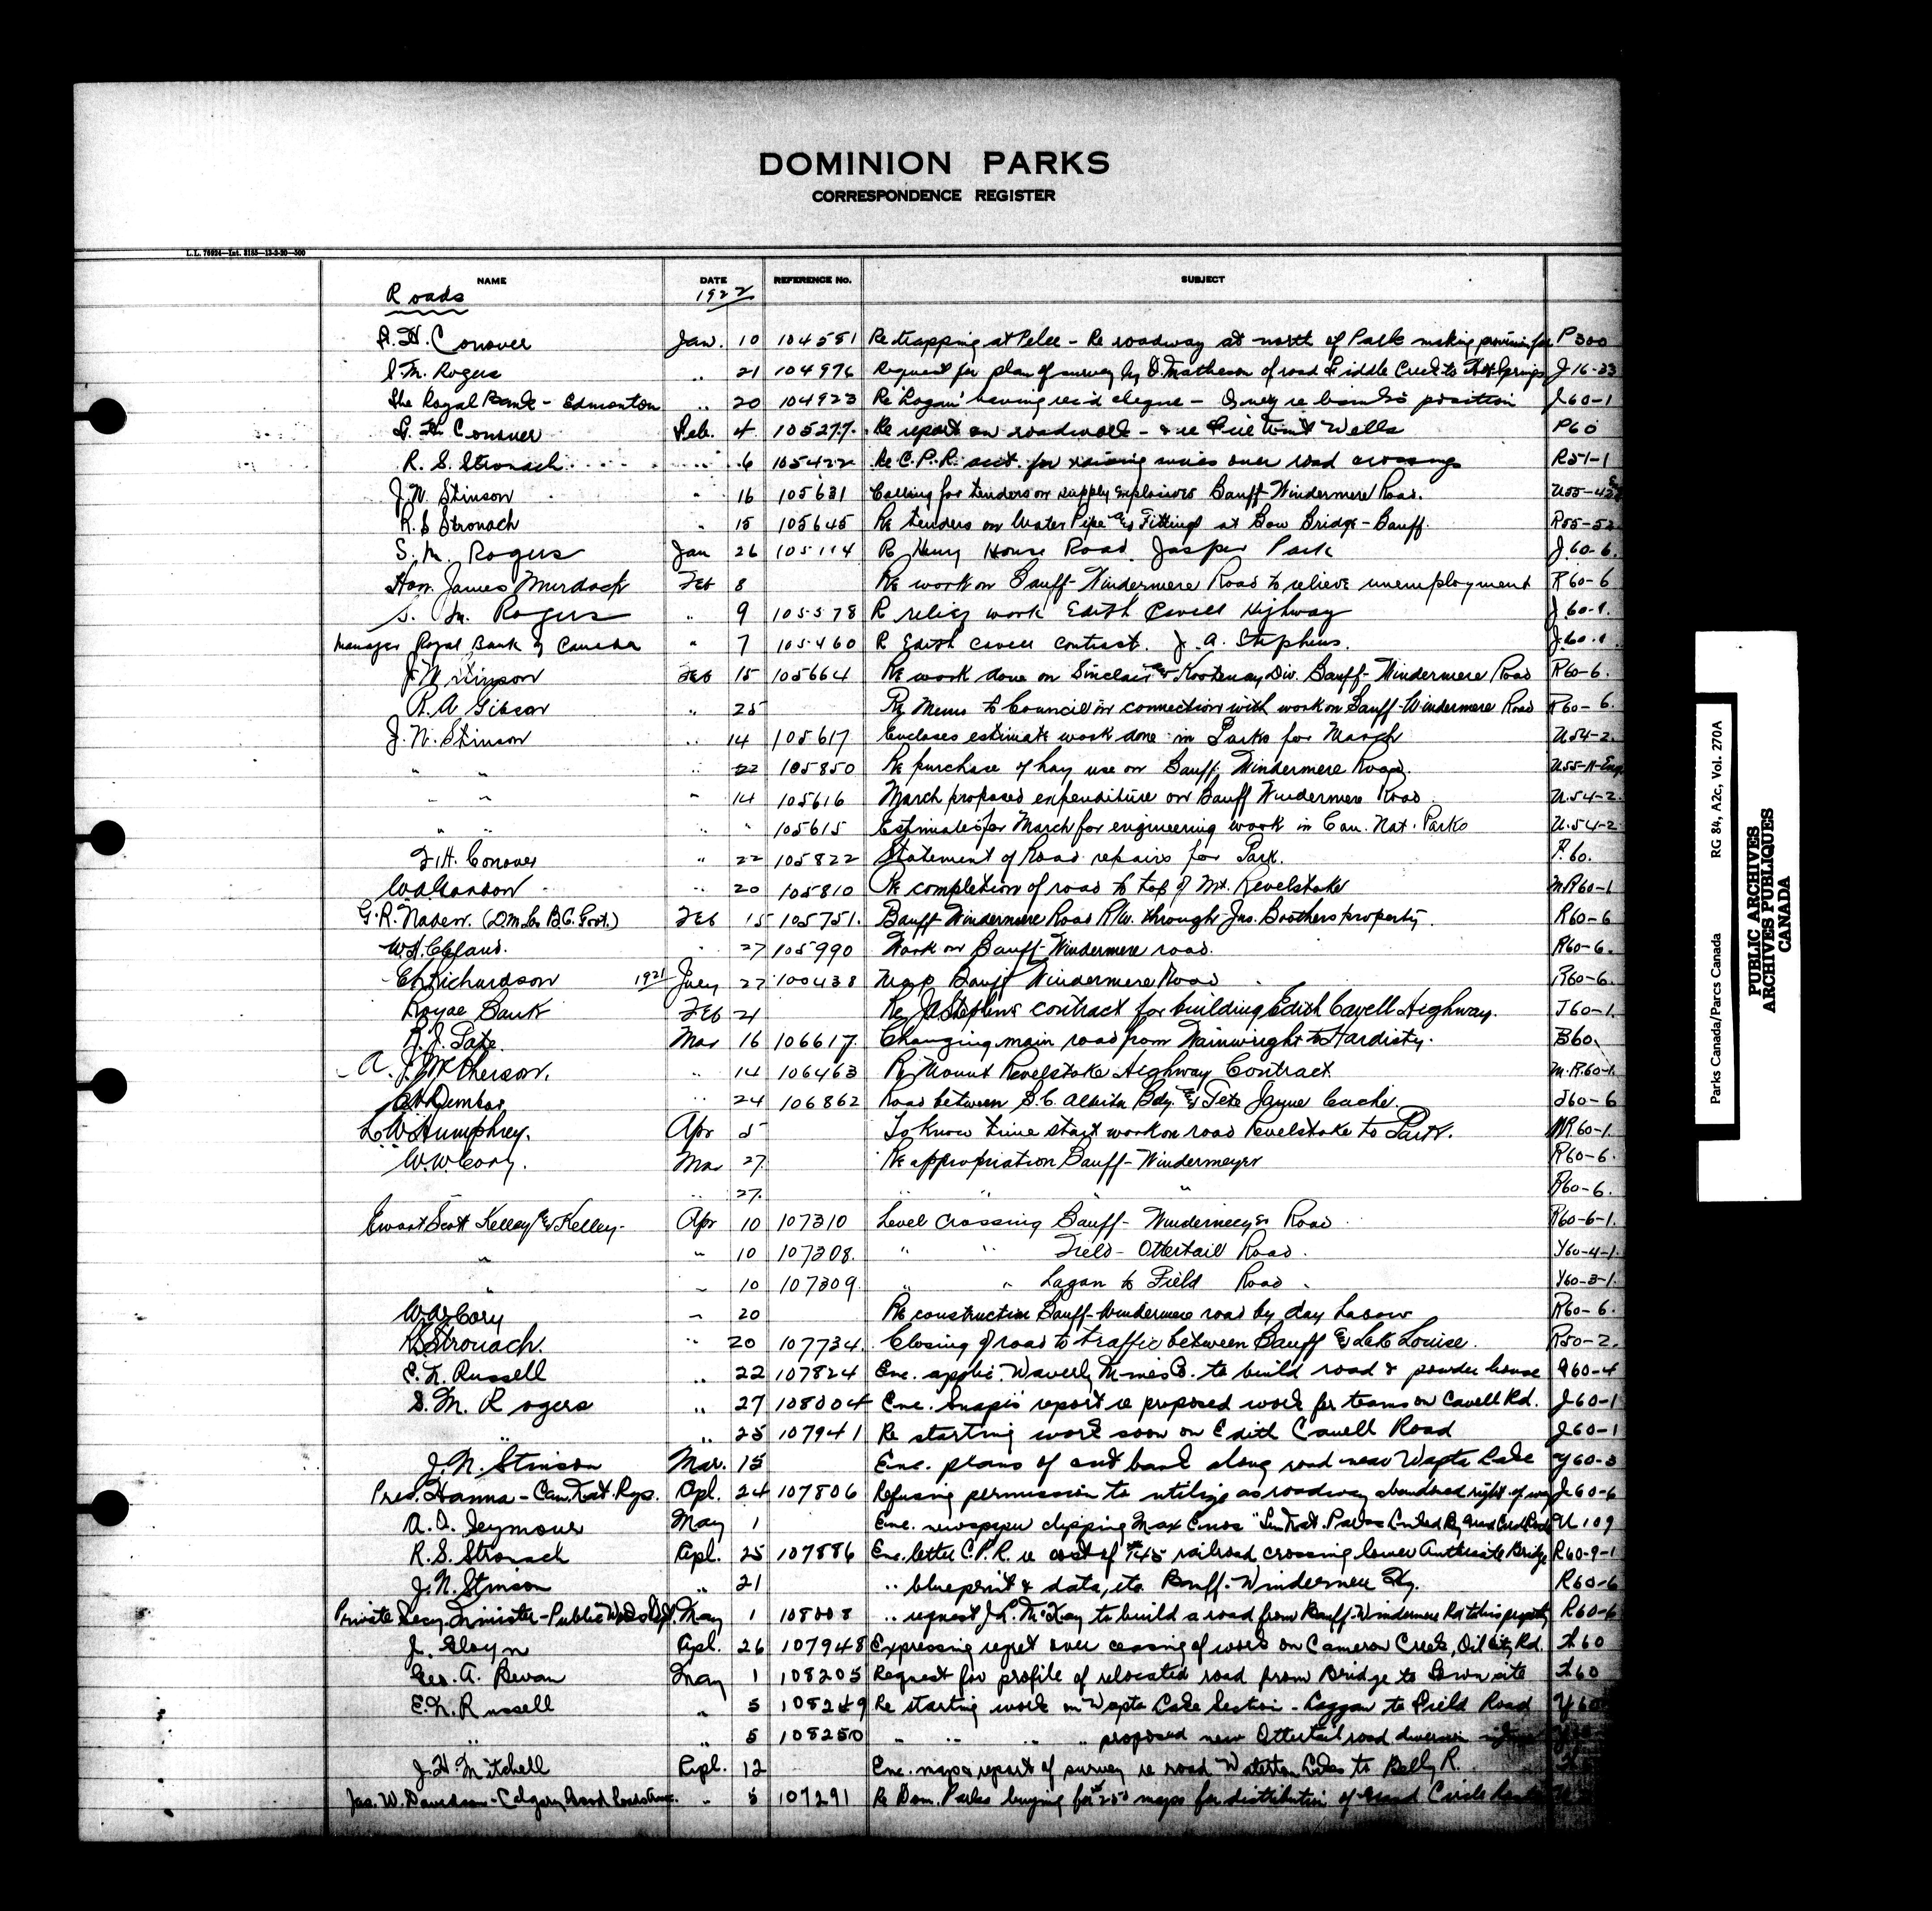 DOMINION PARKS
CORRESPONDENCE REGISTER
L.L. 76924—Int. 3185—13-3-20—500
NAME DATE REFERENCE No. SUBJECT
Roads 1922
F. H. Conover Jan. 10 104581 Re trapping at Pelee - Re roadway at north of Park making provision for P300
S. M. Rogers " 21 104976 Request for plan of survey by D. Matheson of road Fiddle Creek to Hot Springs J16-33
The Royal Bank - Edmonton " 20 104923 Re Logan having rec'd cheque - re bank's position J60-1
F. H. Conover Feb. 4 105277 Re report on roadwork - & re Wells P60
R. S. Stronach " 6 105422 Re C.P.R. acct. for raising wires over road crossings R51-1
J. N. Stinson " 16 105631 Calling for tenders on supply explosives Banff-Windermere Road. U55-42
R. S. Stronach " 15 105645 Re tenders on Water Pipe & Fittings at Bow Bridge - Banff. R55-52
S. M. Rogers Jan 26 105114 Re Henry House Road Jasper Park J.60-6.
Hon. James Murdock Feb 8 Re work on Banff-Windermere Road to relieve unemployment R60-6
S. M. Rogers " 9 105578 R relief work Edith Cavell Highway J.60-1.
Manager Royal Bank of Canada " 7 105460 R Edith Cavell contract. J. A. Stephens. J.60-1
J. N. Stinson Feb 15 105664 Re work done on Sinclair & Kootenay Div. Banff-Windermere Road R60-6.
R. A. Gibson " 25 Re Memo to Council in connection with work on Banff-Windermere Road R60-6.
J. N. Stinson " 14 105617 Encloses estimate work done in Parks for March U54-2.
" " " 22 105850 Re purchase of hay use on Banff Windermere Road. U55-H-Eng
" " " 14 105616 March proposed expenditure on Banff Windermere Road U.54-2.
" " " " 105615 Estimates for March for engineering work in Can. Nat. Parks U.54-2
F. H. Conover " 22 105822 Statement of Road repairs for Park. P.60.
" 20 105810 Re completion of road to top of Mt. Revelstoke MR60-1
G. R. Naden. (D.M. B.C. Govt.) Feb 15 105751. Banff Windermere Road R/W. through Jno. Boothers property. R60-6
W. H. Cleland. " 27 105990 Work on Banff-Windermere road. R60-6.
Richardson 1921 July 27 100438 Map Banff Windermere Road R60-6.
Royal Bank Feb 21 Re J A Stephens contract for building Edith Cavell Highway. J60-1.
Mar 16 106617. Changing main road from Wainwright to Hardisty. B60.
A. J. McPherson. " 14 106463 Re Mount Revelstoke Highway Contract. M.R.60-1.
" 24 106862 Road between B.C. Alberta Bdy. & Tete Jaune Cache J60-6
L. W. Humphrey. Apr 5 To know time start work on road Revelstoke to Park. MR.60-1.
W. W. Cory. Mar 27. Re appropriation Banff-Windermeyer R60-6.
" 27. " " " " R60-6.
Ewart Scott Kelley & Kelley. Apr 10 107310 Level crossing Banff-Windermeyer Road R60-6-1.
" " 10 107308. " " Field-Ottertail Road. Y60-4-1.
" " 10 107309. " " Lagan to Field Road. Y60-3-1.
W. W. Cory " 20 Re construction Banff-Windermere road by day labour R60-6.
R. S. Stronach. " 20 107734. Closing of road to traffic between Banff & Lake Louise. R50-2.
E. N. Russell " 22 107824 Enc. applic. Waverly Mines Co. to build road & powder house G60-4
S. M. Rogers " 27 108004 Enc. Snape's report re proposed work for teams on Cavell Rd. J60-1
" " 25 107941 Re starting work soon on Edith Cavell Road J60-1
J. N. Stinson Mar. 15 Enc. plans of cut bank along road near Wapta Lake Y60-3
Pres. Hanna - Can. Nat. Rys. Apl. 24 107806 Refusing permission to utilize as roadway abandoned right of way J60-6
A. O. Seymour May 1 Enc. newspaper clipping U109
R. S. Stronach Apl. 25 107886 Enc. letter C.P.R. re cost of railroad crossing lower Anthracite Bridge R60-9-1
J. N. Stinson " 21 " blueprint & data, etc. Banff-Windermere Hy. R60-6
Private Secy. Minister - Public Works Dept. May 1 108008 " request J. L. McKay to build a road from Banff-Windermere Rd. to his property R60-6
J. Gloyn Apl. 26 107948 Expressing regret over ceasing of work on Cameron Creek, Oil City Rd. W60
Geo. A. Bevan May 1 108205 Request for profile of relocated road from Bridge to Townsite W60
E. N. Russell " 5 108249 Re starting work on Wapta Lake Section - Laggan to Field Road Y60
" " 5 108250 " " " " proposed new Ottertail road diversion
J. H. Mitchell Apl. 12 Enc. map & report of survey re road Waterton Lakes to Belly R.
Jas. W. Davidson - Calgary Good Roads Assoc. " 5 107291 Re Dom. Parks buying for maps for distribution of Grand Circle Route
Parks Canada/Parcs Canada RG 84, A2c, Vol. 270A
PUBLIC ARCHIVES
ARCHIVES PUBLIQUES
CANADA